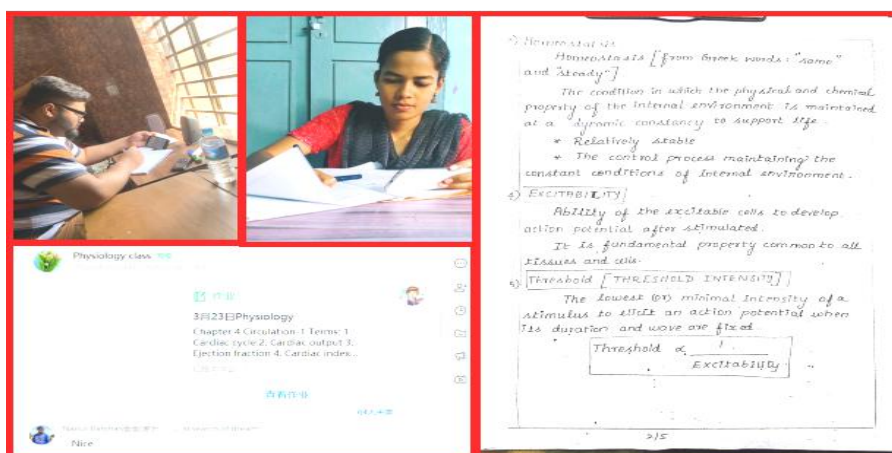 Physiology class
作业
3月23日Physiology
Chapter 4 Circulation-1 Terms: 1.
Cardiac cycle 2. Cardiac output 3.
Ejection fraction 4. Cardiac index...
查看作业
Nice
Homeostasis
Homeostasis [from Greek words: "same"
and "steady"]
The condition in which the physical and chemical
property of the internal environment is maintained
at a dynamic constancy to support life.
* Relatively stable
* The control process maintaining the
constant conditions of internal environment.
EXCITABILITY
Ability of the excitable cells to develop
action potential after stimulated.
It is fundamental property common to all
tissues and cells.
5) Threshold [THRESHOLD INTENSITY]
The lowest (or) minimal Intensity of a
stimulus to elicit an action potential when
its duration and wave are fixed.
Threshold ∝ 1
Excitability
2/5